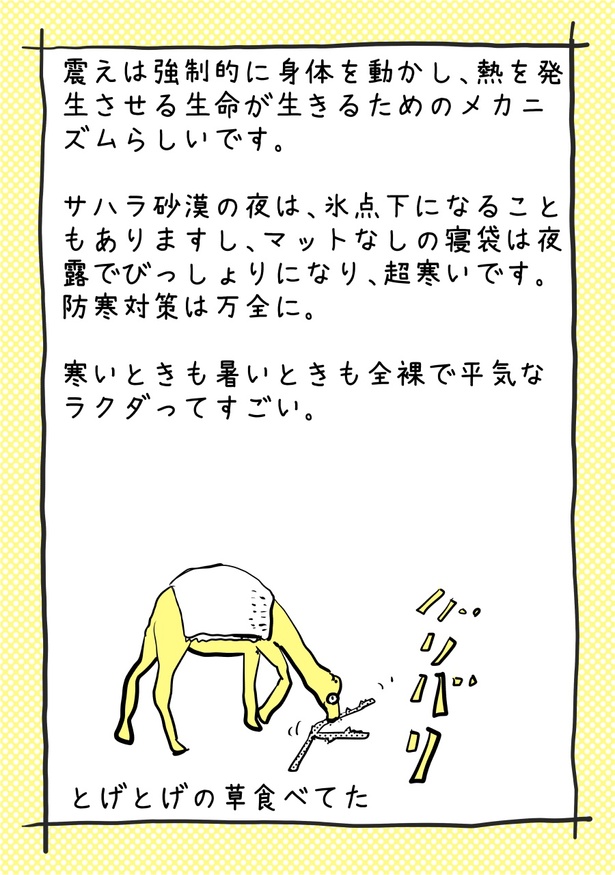 震えは強制的に身体を動かし、熱を発
生させる生命が生きるためのメカニ
ズムらしいです。
サハラ砂漠の夜は、氷点下になること
もありますし、マットなしの寝袋は夜
露でびっしょりになり、超寒いです。
防寒対策は万全に。
寒いときも暑いときも全裸で平気な
ラクダってすごい。
バリバリ
とげとげの草食べてた